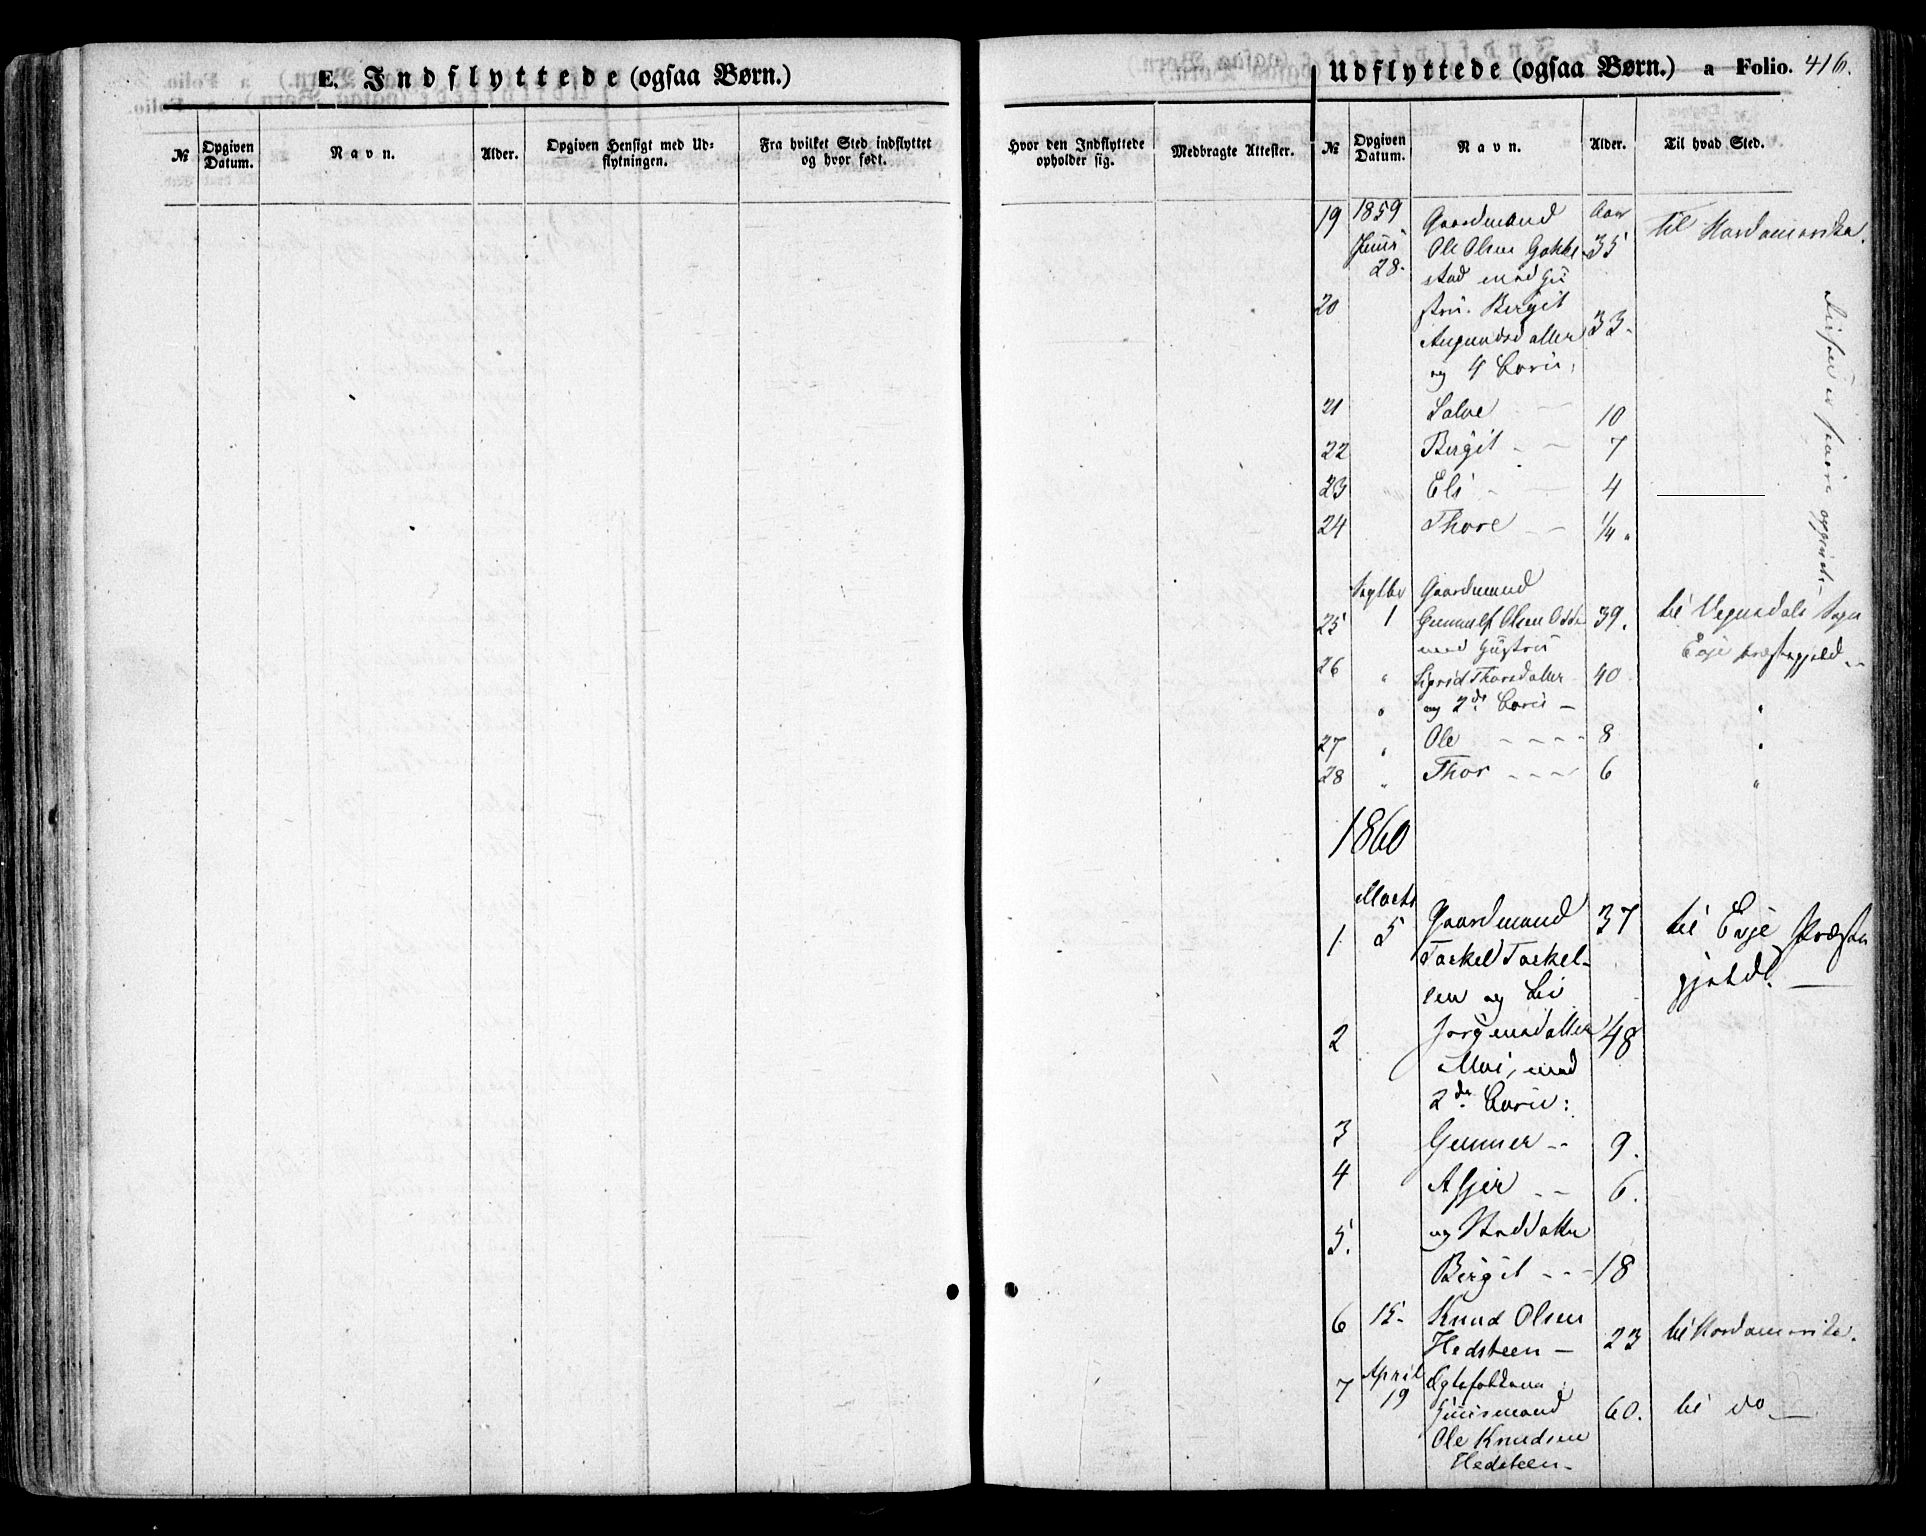 E. Indflyttede (ogsaa Børn.)
№
Opgiven Datum.
Navn.
Alder.
Opgiven Hensigt med Udflytningen.
Fra hvilket Sted indflyttet og hvor født.
Hvor den Indflyttede opholder sig.
Medbragte Attester.
Udflyttede (ogsaa Børn.) a Folio. 416.
№
Opgiven Datum.
Navn.
Alder.
Til hvad Sted.
19 1859 Gaardmand Aar
Juni Ole Olsen Gakke- 35 Til Nordamerika.
28. stad med Hu
20 stru. Bergit
Augundsdatter 33.
og 4 Børn,
21 Salve 10
22 Bergit 7
23 Eli 4
24 Thore 1/4
Gaardmand
25 1 Gunnulf Olsen 39. til Vegusdals Sogn
med Hustru Evje Præstegjeld
26 " Sigrid Thorsdatter 40
" og 2de Børn "
27 " Ole 8 "
28 " Thor 6 "
1860
Marts
1 5 Gaardmand 37 til Evje Præste
Torkel Torkel- gjeld.
sen og Liv
2 Jorgensdatter 48
Moi, med
2de Børn:
3 Gunner 9.
4 Asjer 6.
5. og Staddatter
Bergit 18
6 15. Knud Olsen
Hedsteen 23 til Nordamerika.
7 April Egtefolkene
19 Huusmand 60. til do
Ole Knudsen
Hedsteen